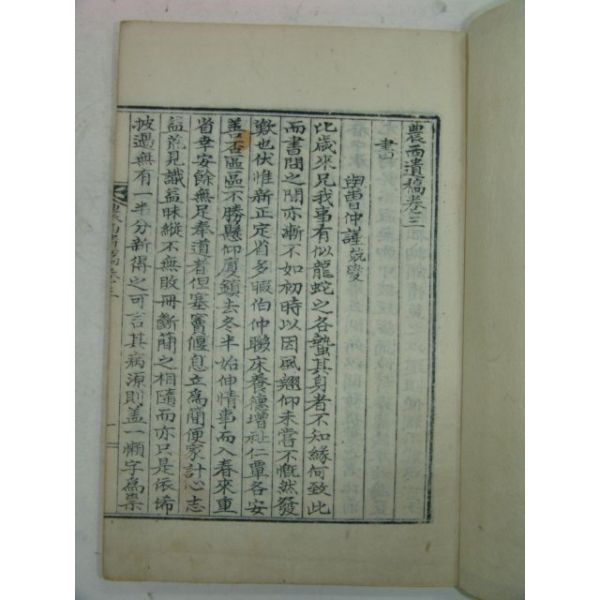 農雨遺稿卷三
書
與曺仲謹兢燮
比歲來兄我事有似龍蛇之各蟄其身者不知緣何致此
而書問之闊亦漸不如初時以因風翹仰未嘗不慨然發
歎也伏惟新正定省多暇伯仲聯床養德增祉仁覃各安
善否區區不勝懸仰廈鎭去冬半始伸情事而入春來重
省幸安餘無足奉道者但塞竇偃息立爲簡便家計心志
益荒見識益昧縱不無敗冊斷簡之相隨而亦只是依俙
披過無有一半分新得之可言其病源則盖一懶字爲祟